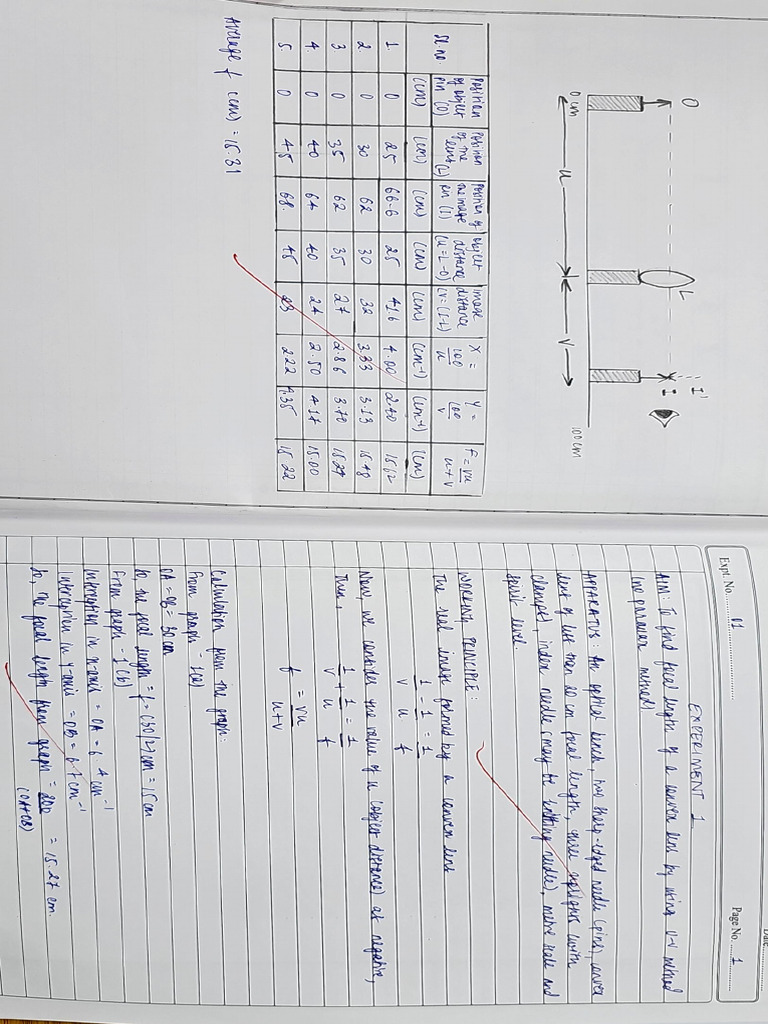 Date
Expt. No. 01
Page No. 1
EXPERIMENT 1
AIM: To find focal length of a convex lens by using u-v method
(no parallax method)
APPARATUS: An optical bench, two sharp-edged needle (pins), convex
lens of less then 20 cm focal length, three uprights (with
clamps), index needle (may be knitting needle), metre scale and
spirit level.
WORKING PRINCIPLE:
The real image formed by a convex lens
1/v - 1/u = 1/f
Now, we consider the value of u (object distance) as negative,
Thus,
1/v + 1/u = 1/f
f = vu/u+v
Calculation from the graph:
From graph - 1(a)
OA = OB = 30 cm
So, the focal length = f = (30/2) cm = 15 cm
From graph - 1(b)
Interception in x-axis = OA = 6.4 cm⁻¹
Interception in y-axis = OB = 6.7 cm⁻¹
So, the focal length from graph = 200/(OA+OB) = 15.27 cm.
O L I I'
0 cm u v 100 cm
Sl. no. Position of object pin (O) (cm) Position of the lens (L) (cm) Position of the image pin (I) (cm) Object distance (u=L-O) (cm) Image distance (v=(I-L) (cm) X = 100/u (cm⁻¹) Y = 100/v (cm⁻¹) f = vu/u+v (cm)
1 0 25 66.6 25 41.6 4.00 2.40 15.62
2. 0 30 62 30 32 3.33 3.13 15.48
3 0 35 62 35 27 2.86 3.70 15.24
4. 0 40 64 40 24 2.50 4.17 15.00
5. 0 45 68. 45 23 2.22 4.35 15.22
Average f (cm) = 15.31